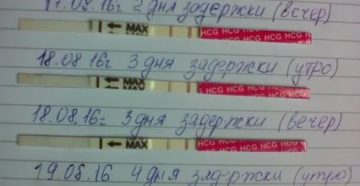 17.08.16г 2 дня задержки (вечер)
MAX HCG HCG HCG HCG HCG HCG HCG
18.08.16г 3 дня задержки (утро)
MAX HCG HCG HCG HCG HCG HCG
18.08.16г 3 дня задержки (вечер)
MAX HCG HCG HCG HCG HCG HCG
19.08.16 4 дня задержки (утро)